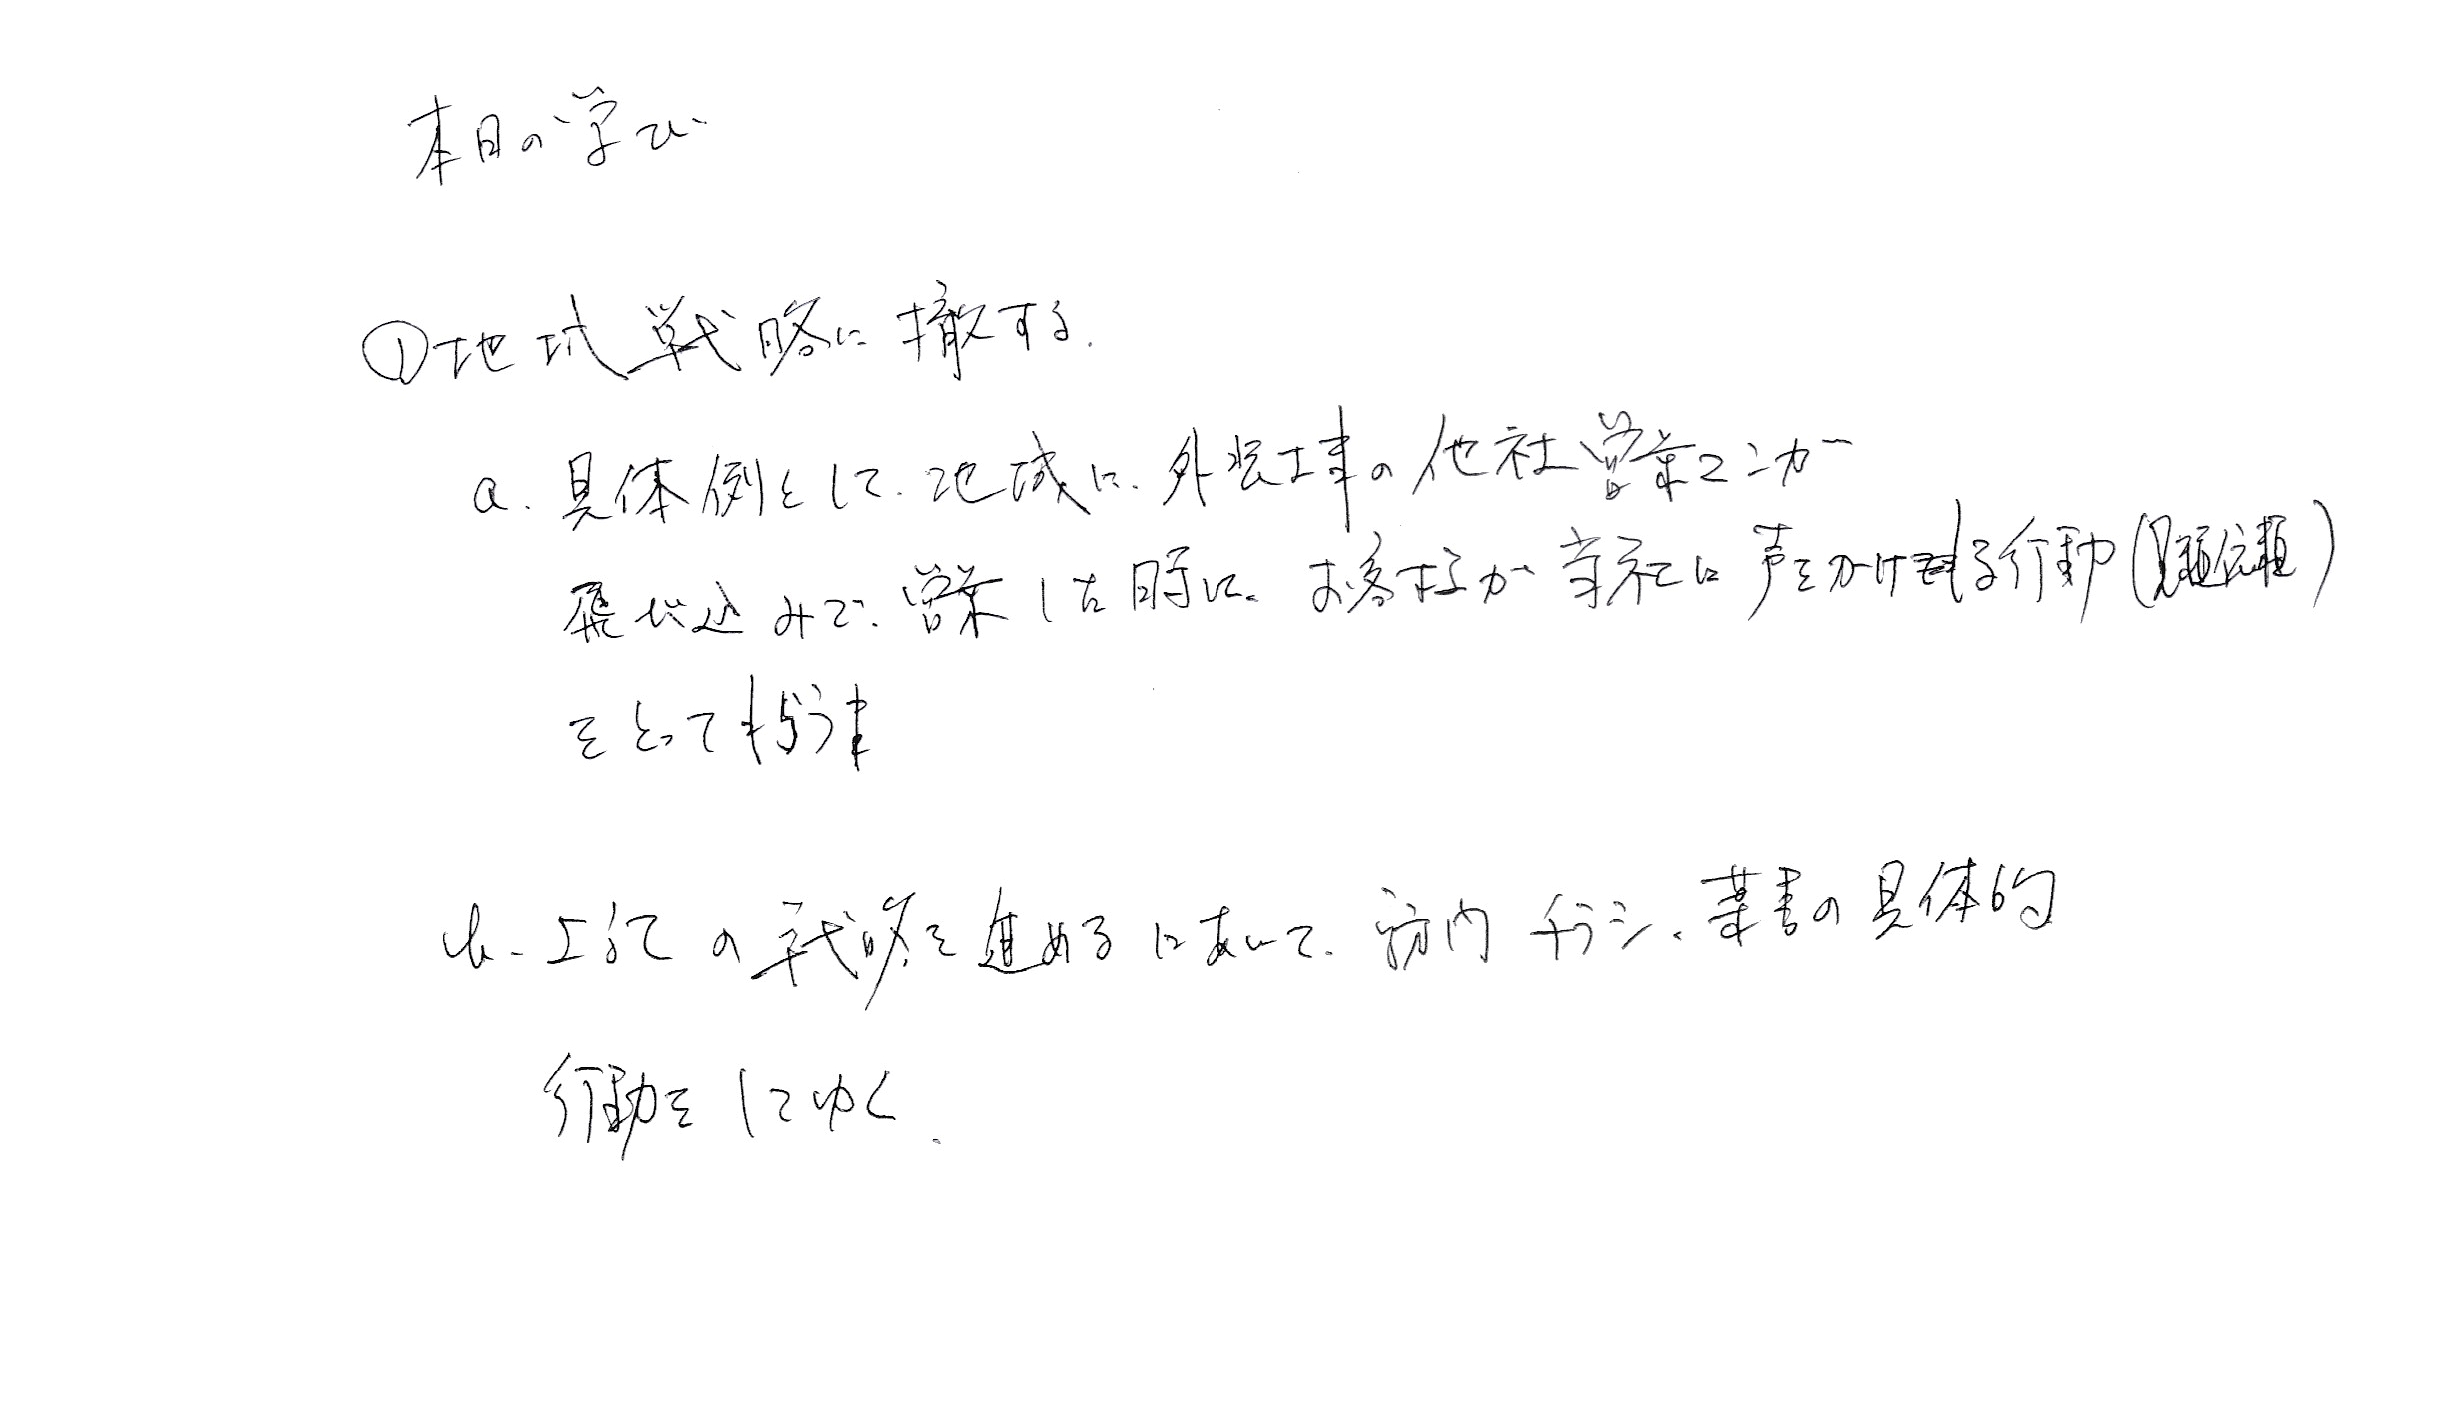 本日の学び
①地域戦略に撤する.
a. 具体例として.地域に.外装工事の他社営業マンが
飛び込みで.営業した時に.お客さまが当社に声をかける行動(見積依頼)
をとってもらう事
b. 上記の戦略を進めるにあたって.訪問 チラシ、葉書の具体的
行動をしてゆく.